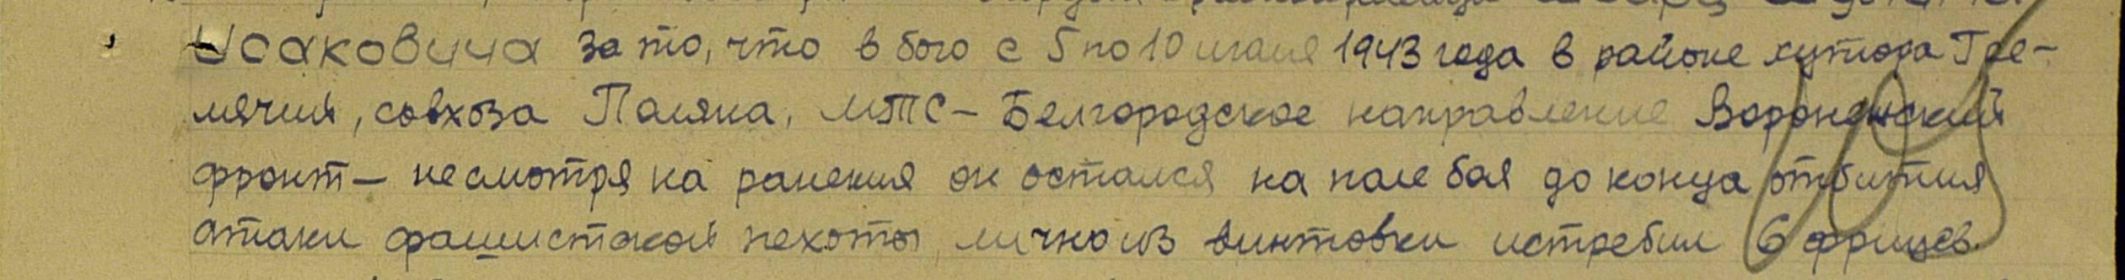 Исаковича за то, что в бою с 5 по 10 июля 1943 года в районе хутора Гре-
мячий, совхоза Поляна, МТС - Белгородское направление Воронежский
фронт - несмотря на ранения он остался на поле боя до конца отбития
атаки фашистской пехоты лично из винтовки истребил 6 фрицев.